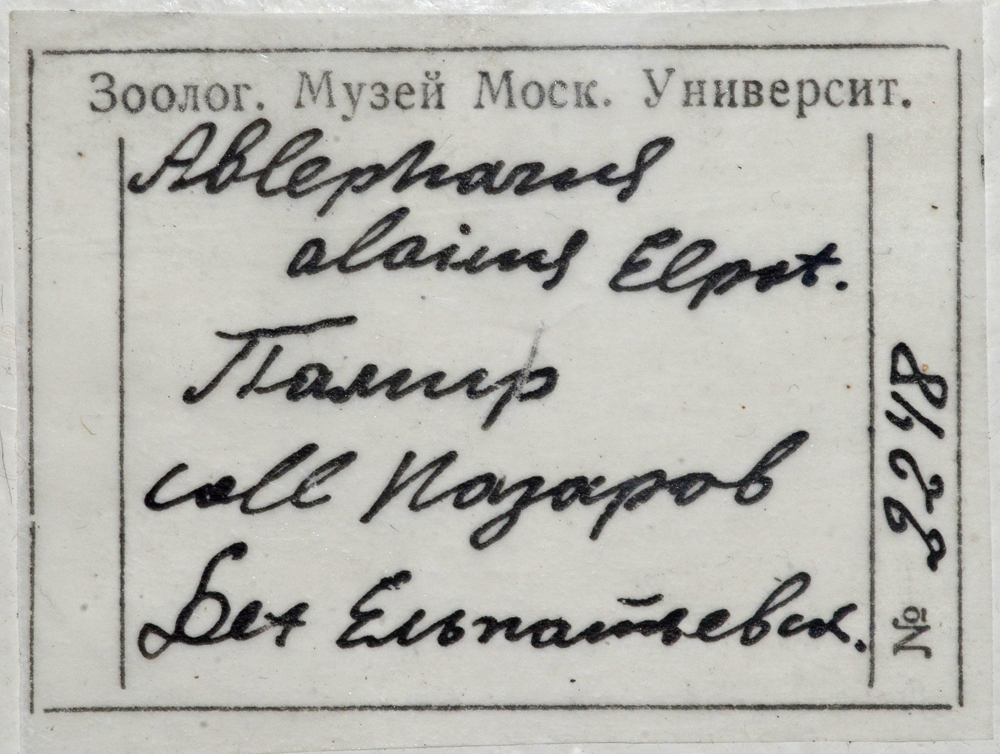 Зоолог. Музей Моск. Университ.
Ablepharus
alaicus Elpat.
Памир
coll Назаров
Det Ельпатьевск.
№ 2248